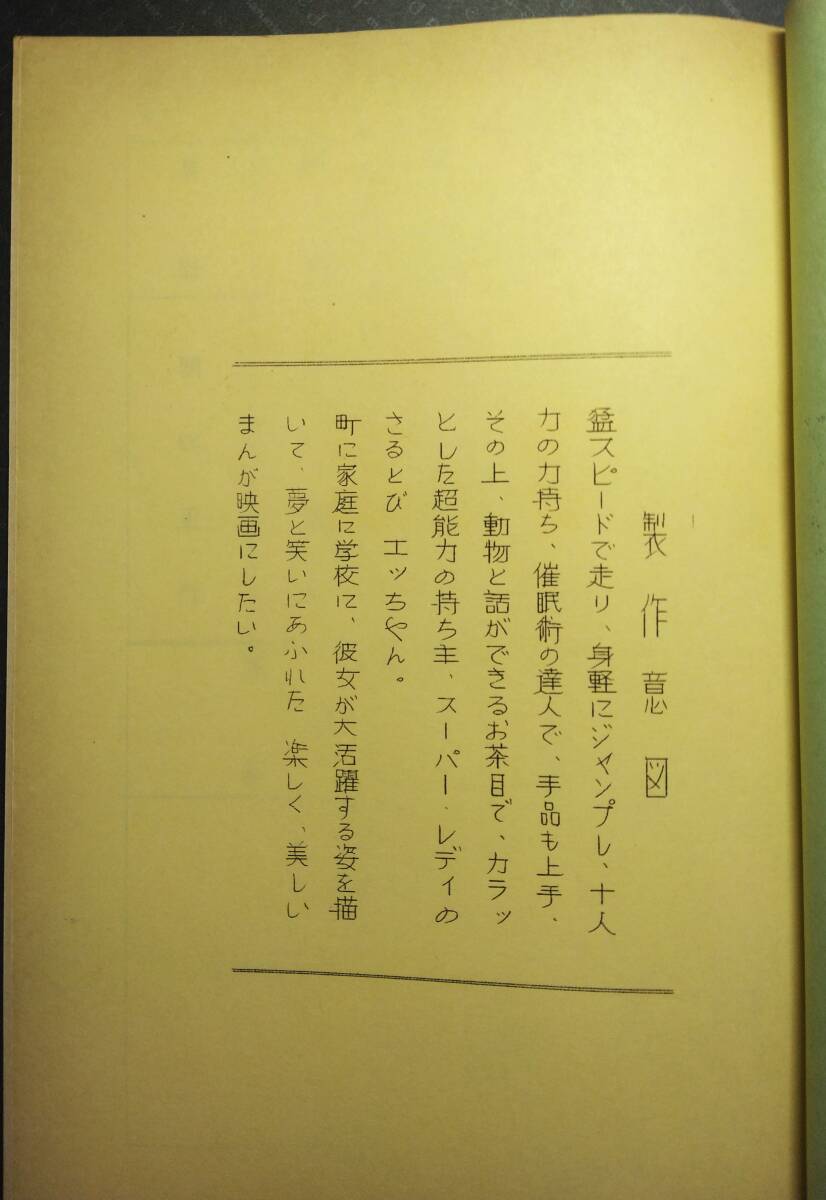 製作意図
猛スピードで走り、身軽にジャンプし、十人
力の力持ち、催眠術の達人で、手品も上手、
その上、動物と話ができるお茶目で、カラッ
とした超能力の持ち主、スーパー・レディの
さるとび エッちゃん。
町に家庭に学校に、彼女が大活躍する姿を描
いて、夢と笑いにあふれた 楽しく、美しい
まんが映画にしたい。